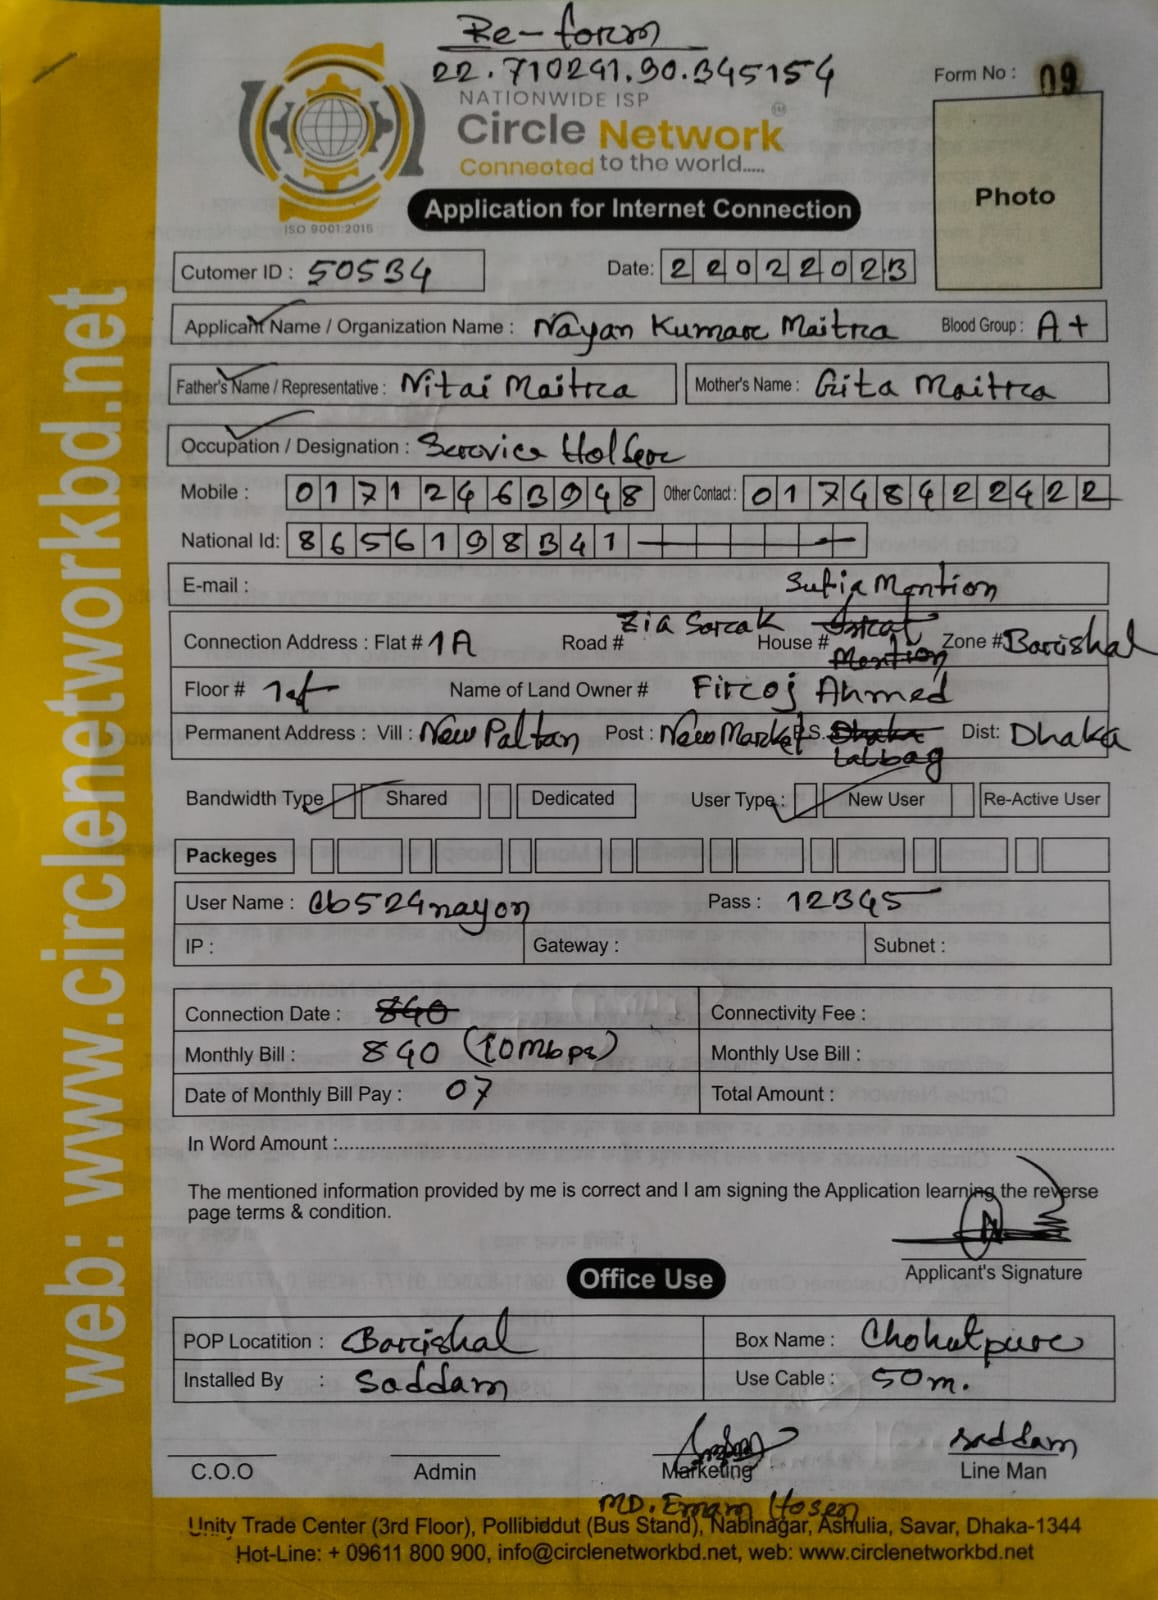 Re-form
22.710241.90.345154
Form No : 09
NATIONWIDE ISP
Circle Network
Connected to the world.....
ISO 9001:2015
Photo
Application for Internet Connection
Cutomer ID : 50534
Date: 22022023
Applicant Name / Organization Name : Nayan Kumar Maitra Blood Group : A+
Father's Name / Representative : Nitai Maitra Mother's Name : Gita Maitra
Occupation / Designation : Service Holder
Mobile : 01712463948 Other Contact : 01748422422
National Id: 8656198341
E-mail :
Sufia Mention
Connection Address : Flat # 1A Road # Zia Sarak House # Zone # Barishal
Floor # 1st Name of Land Owner # Firoj Ahmed
Permanent Address : Vill : New Paltan Post : New Market P.S. Dhaka Lalbag Dist: Dhaka
Bandwidth Type Shared Dedicated User Type : New User Re-Active User
Packeges
User Name : cb524nayon Pass : 12345
IP : Gateway : Subnet :
Connection Date : 840 Connectivity Fee :
Monthly Bill : 840 (10Mbps) Monthly Use Bill :
Date of Monthly Bill Pay : 07 Total Amount :
In Word Amount :
The mentioned information provided by me is correct and I am signing the Application learning the reverse
page terms & condition.
Applicant's Signature
Office Use
POP Locatition : Barishal Box Name : Chohatpur
Installed By : Saddam Use Cable : 50m.
saddam
C.O.O Admin Marketing Line Man
MD. Emam Hosen
Unity Trade Center (3rd Floor), Pollibiddut (Bus Stand), Nabinagar, Ashulia, Savar, Dhaka-1344
Hot-Line: + 09611 800 900, info@circlenetworkbd.net, web: www.circlenetworkbd.net
web: www.circlenetworkbd.net